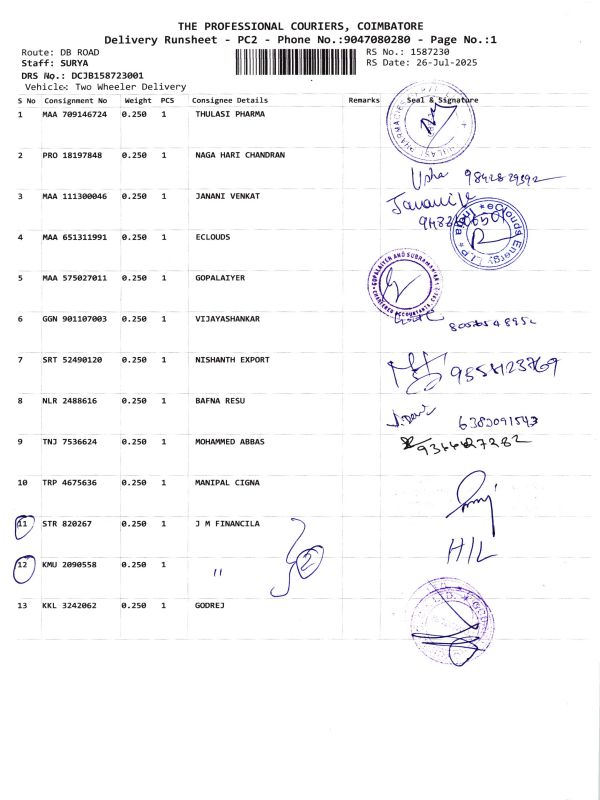 THE PROFESSIONAL COURIERS, COIMBATORE
Delivery Runsheet - PC2 - Phone No.:9047080280 - Page No.:1
Route: DB ROAD RS No.: 1587230
Staff: SURYA RS Date: 26-Jul-2025
DRS No.: DCJB158723001
Vehicle: Two Wheeler Delivery
S No Consignment No Weight PCS Consignee Details Remarks Seal & Signature
1 MAA 709146724 0.250 1 THULASI PHARMA
2 PRO 18197848 0.250 1 NAGA HARI CHANDRAN
Usha
3 MAA 111300046 0.250 1 JANANI VENKAT
Janani V
4 MAA 651311991 0.250 1 ECLOUDS
eClouds Energy LLP
5 MAA 575027011 0.250 1 GOPALAIYER
GOPALAIYER AND SUBRAMANIAN
CHARTERED ACCOUNTANTS
6 GGN 901107003 0.250 1 VIJAYASHANKAR
7 SRT 52490120 0.250 1 NISHANTH EXPORT
8 NLR 2488616 0.250 1 BAFNA RESU
6383091543
9 TNJ 7536624 0.250 1 MOHAMMED ABBAS
10 TRP 4675636 0.250 1 MANIPAL CIGNA
11 STR 820267 0.250 1 J M FINANCILA
12 KMU 2090558 0.250 1 " 2
13 KKL 3242062 0.250 1 GODREJ